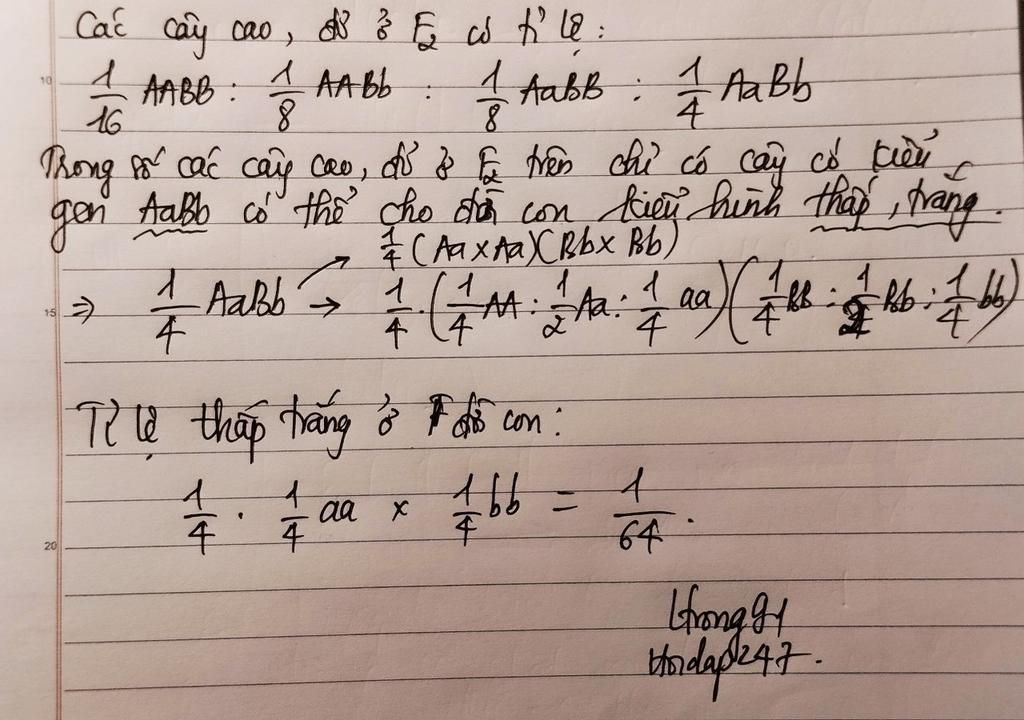 Các cây cao, đỏ ở F2 có tỉ lệ:
10
1/16 AABB : 1/8 AABb : 1/8 AaBB : 1/4 AaBb
Trong số các cây cao, đỏ ở F2 trên chỉ có cây có kiểu
gen AaBb có thể cho đời con kiểu hình thấp, trắng.
1/4 (Aa x Aa)(Bb x Bb)
15 => 1/4 AaBb → 1/4 . (1/4 AA : 1/2 Aa : 1/4 aa)(1/4 BB : 1/2 Bb : 1/4 bb)
Tỉ lệ thấp trắng ở đời con:
1/4 . 1/4 aa x 1/4 bb = 1/64.
20
Hoidap247.